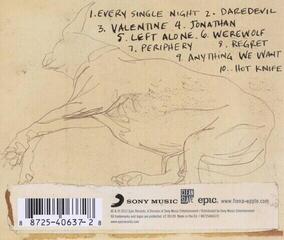 1. EVERY SINGLE NIGHT 2. DAREDEVIL
3. VALENTINE 4. JONATHAN
5. LEFT ALONE. 6. WEREWOLF
7. PERIPHERY 8. REGRET
9. ANYTHING WE WANT
10.. HOT KNIFE
SONY MUSIC epic. www.fiona-apple.com
8 88725-40637-2 8